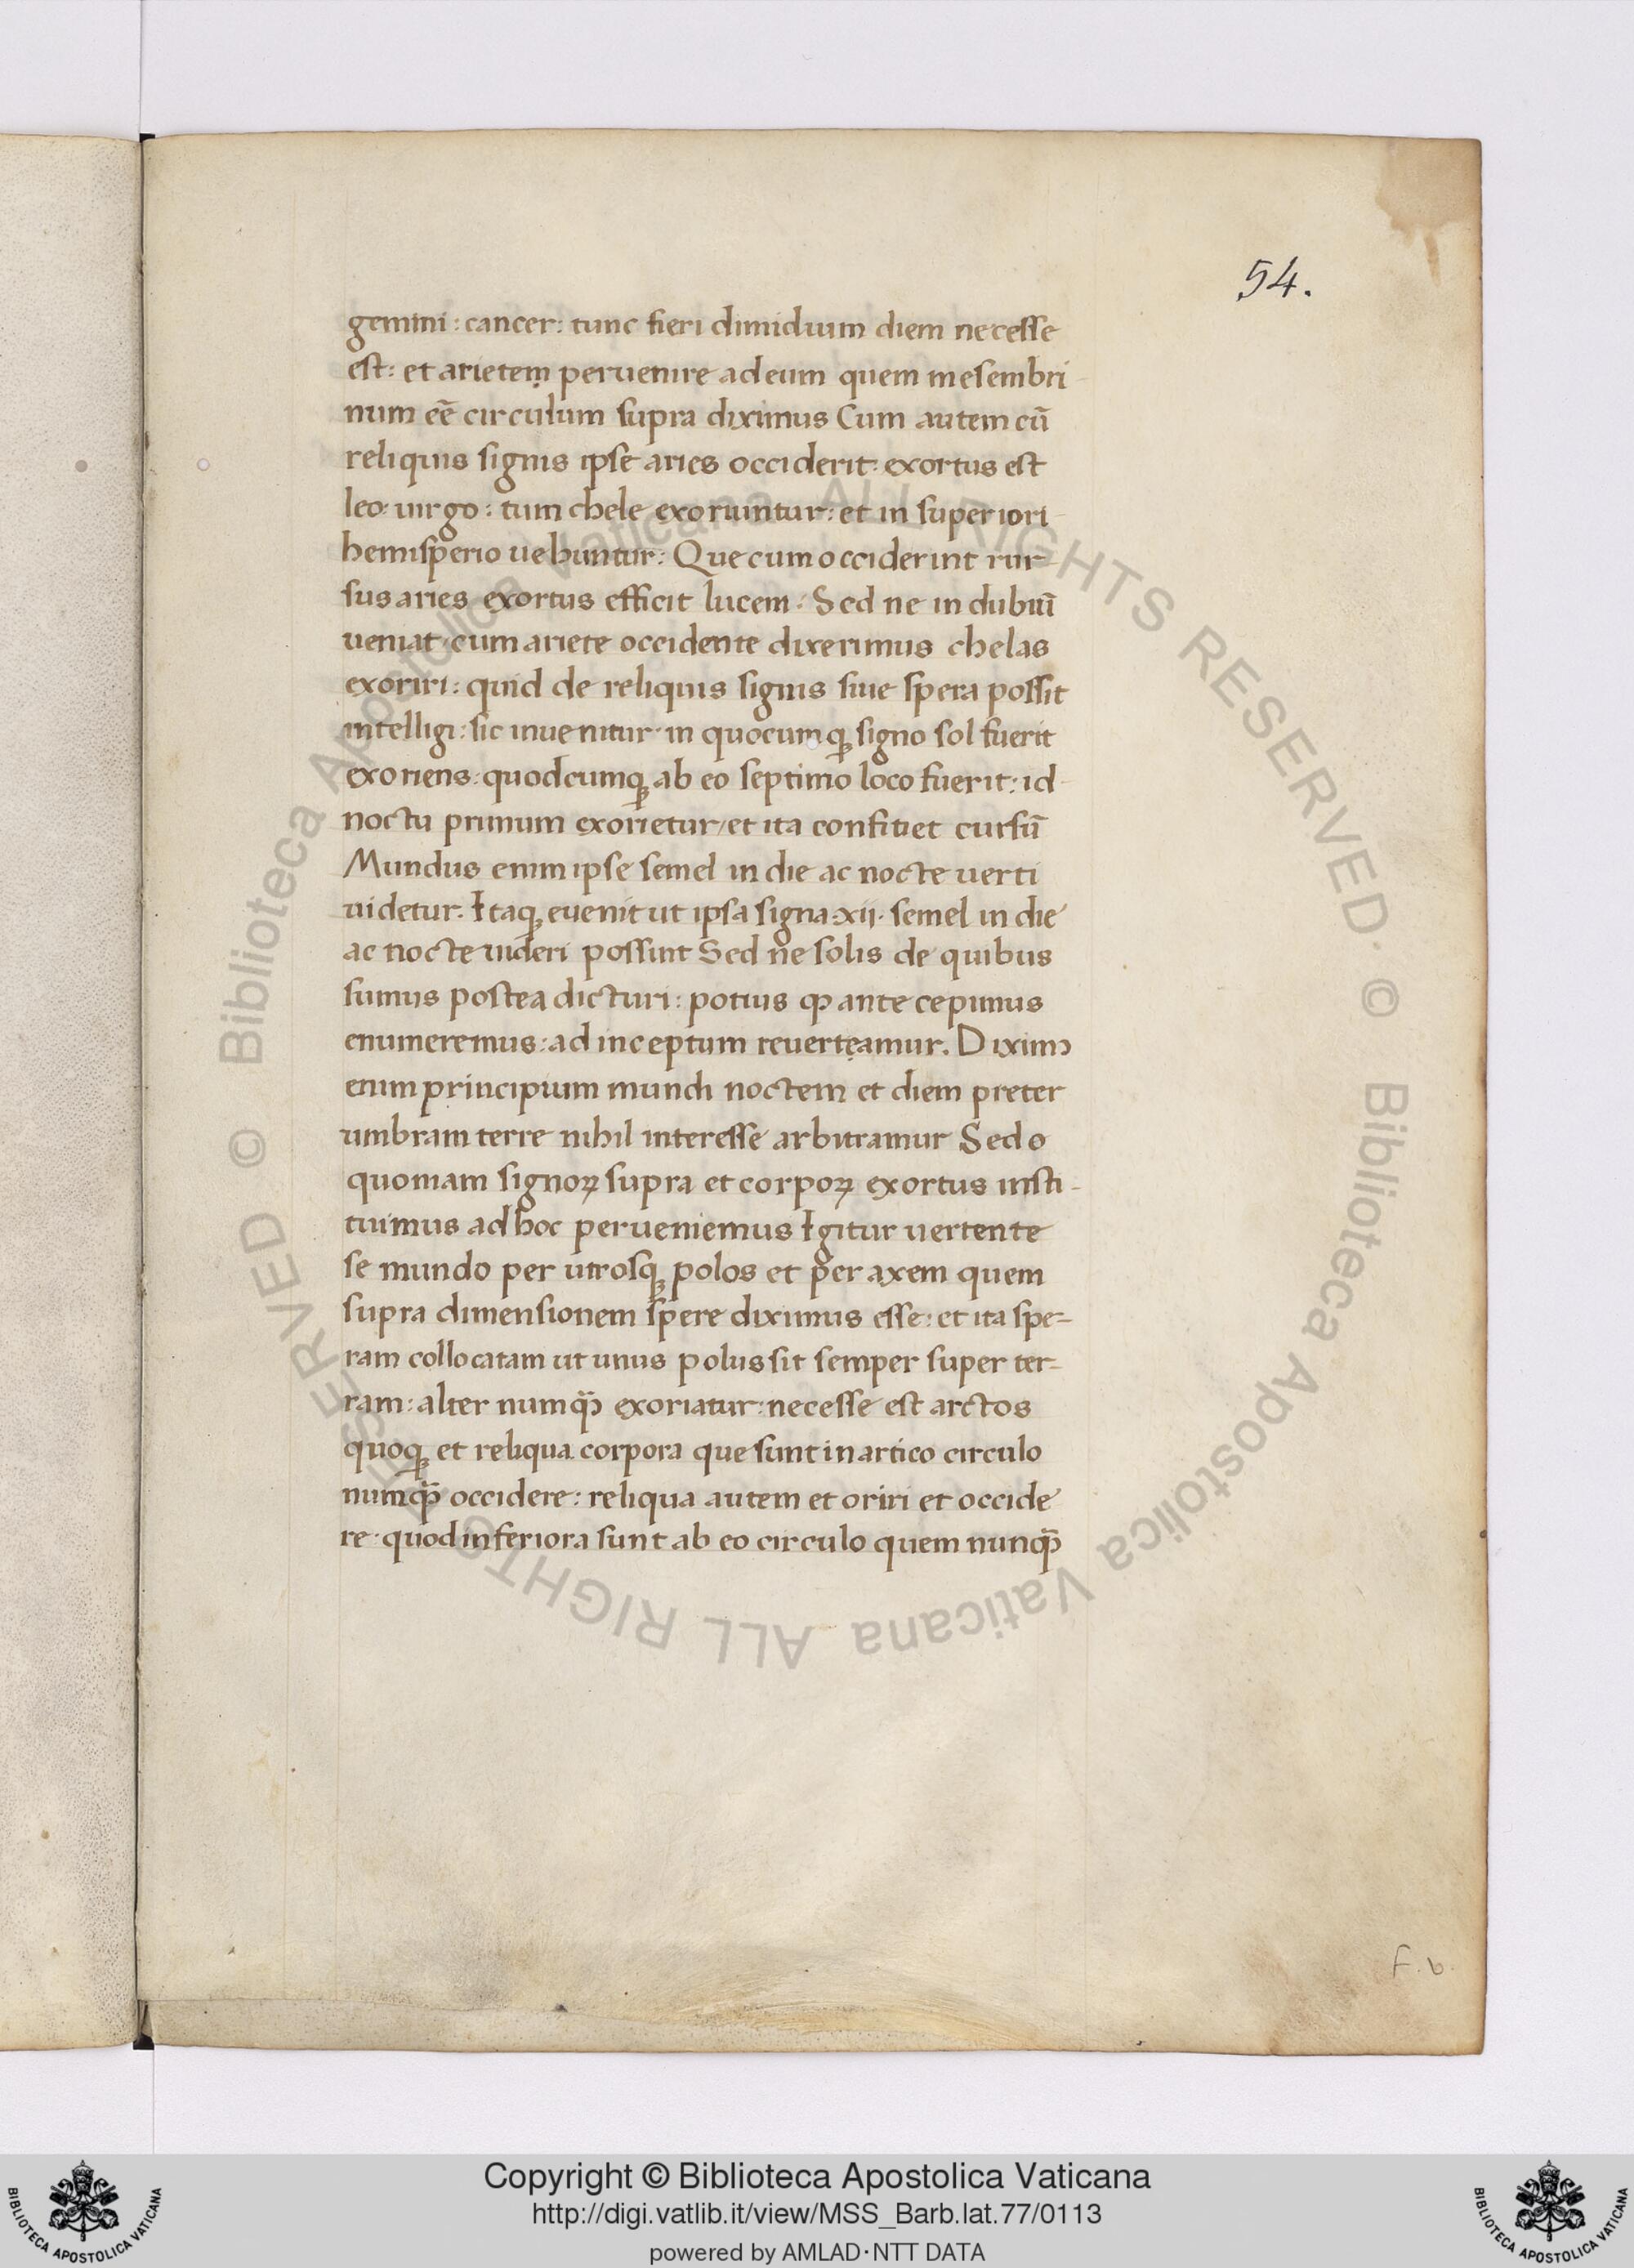 54.
gemini : cancer : tunc fieri dimidium diem necesse
est : et arietem peruenire ad eum quem mesembri-
num eē circulum supra diximus Cum autem cū
reliquis signis ipse aries occiderit : exortus est
leo · uirgo : tum chele exoriuntur : et in superiori
hemisperio uehuntur : Que cum occiderint rur-
sus aries exortus efficit lucem · Sed ne in dubiū
ueniat · cum ariete occidente dixerimus chelas
exoriri : quid de reliquis signis siue spera possit
intelligi : sic inuenitur · in quocumqꝫ signo sol fuerit
exoriens : quodcumqꝫ ab eo septimo loco fuerit : id
noctu primum exorietur / et ita confitiet cursū
Mundus enim ipse semel in die ac nocte uerti
uidetur. Itaqꝫ euenit ut ipsa signa · xij · semel in die
ac nocte uideri possint Sed ne solis de quibus
sumus postea dicturi : potius qꝫ ante cepimus
enumeremus : ad inceptum reuerteamur. Diximꝰ
enim principium mundi noctem et diem preter
umbram terre nihil interesse arbitramur Sed o
quoniam signoꝝ supra et corpoꝝ exortus insti-
tuimus ad hoc perueniemus Igitur uertente
se mundo per utrosqꝫ polos et per axem quem
supra dimensionem spere diximus esse : et ita spe=
ram collocatam ut unus polus sit semper super ter=
ram : alter numq̄ꝫ exoriatur : necesse est arctos
quoqꝫ et reliqua corpora que sunt in artico circulo
numq̄ꝫ occidere : reliqua autem et oriri et occide
re · quod inferiora sunt ab eo circulo quem nunq̄ꝫ
F. v.
© Biblioteca Apostolica Vaticana ALL RIGHTS RESERVED · © Biblioteca Apostolica Vaticana ALL RIGHTS RESERVED
BIBLIOTECA APOSTOLICA VATICANA
Copyright © Biblioteca Apostolica Vaticana
http://digi.vatlib.it/view/MSS_Barb.lat.77/0113
powered by AMLAD·NTT DATA
BIBLIOTECA APOSTOLICA VATICANA